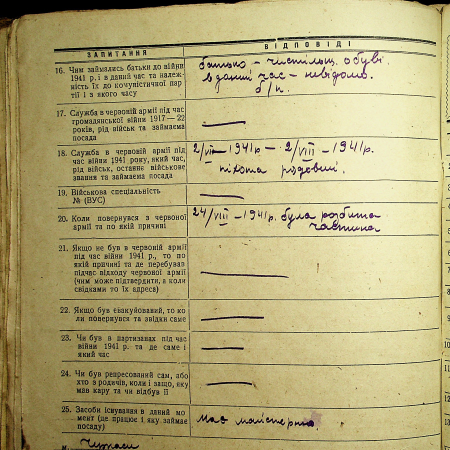 ЗАПИТАННЯ
ВІДПОВІДІ
16. Чим займались батьки до війни
1941 р. і в даний час та належ-
ність їх до комуністичної пар-
тії і з якого часу
батько – чистільщ. обуві.
в даний час – невідомо.
б/п.
17. Служба в червоній армії під час
громадянської війни 1917—22
років, рід військ та займаєма
посада
18. Служба в червоній армії під
час війни 1941 року, який час,
рід військ, останнє військове
звання та займаєма посада
2/VII – 1941 р – 2/VIII – 1941 р.
піхота рядовий.
19. Військова спеціальність
№ (ВУС)
20. Коли повернувся з червоної
армії та по якій причині
24/VIII – 1941 р. була розбита
частина
21. Якщо не був в червоній армії
під час війни 1941 р., то по
якій причині та де перебував
підчас відходу червоної армії
(чим може підтвердити, а коли
свідками то їх адреса)
22. Якщо був евакуйований, то ко-
ли повернувся та звідки саме
23. Чи був в партизанах під час
війни 1941 р. та де саме і
який час
24. Чи був репресований сам, або
хто з родичів, коли і защо, яку
мав кару та чи відбув її
25. Засоби існування в даний мо-
мент (де працює і яку займає
посаду)
має майстерню